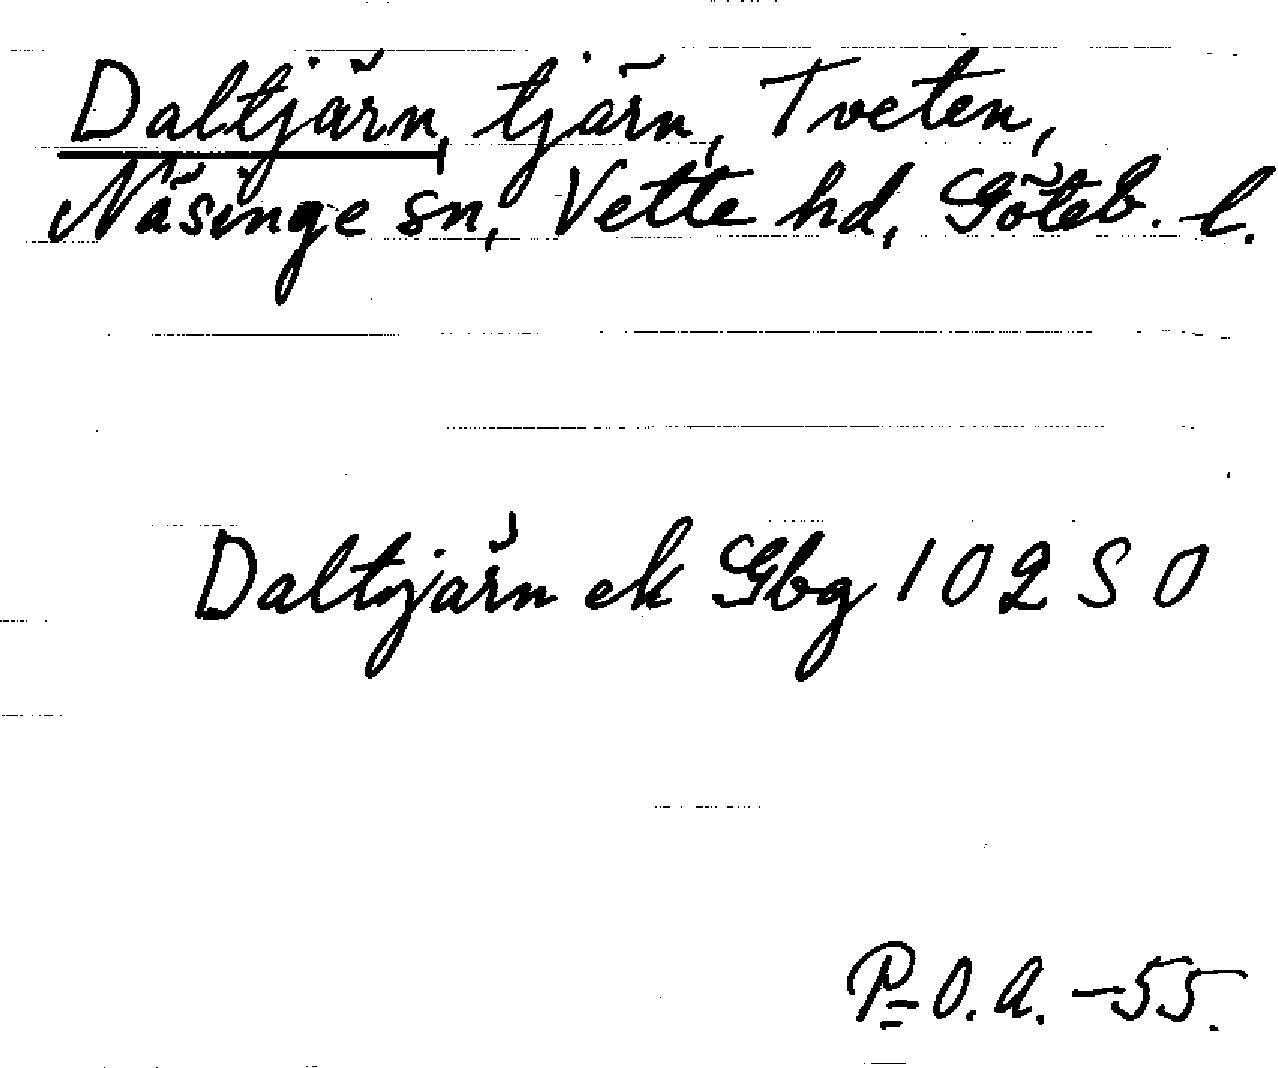 Daltjärn, tjärn, Tveten,
Näsinge sn, Vette hd, Göteb. l.
Daltjärn ek Gbg 10 2 S O
P-O. A. -55.